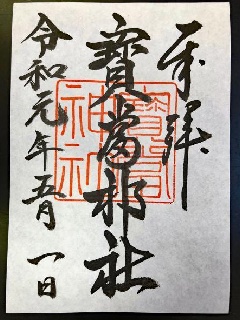 奉拝
寳當神社
令和元年五月一日
寳當
神社